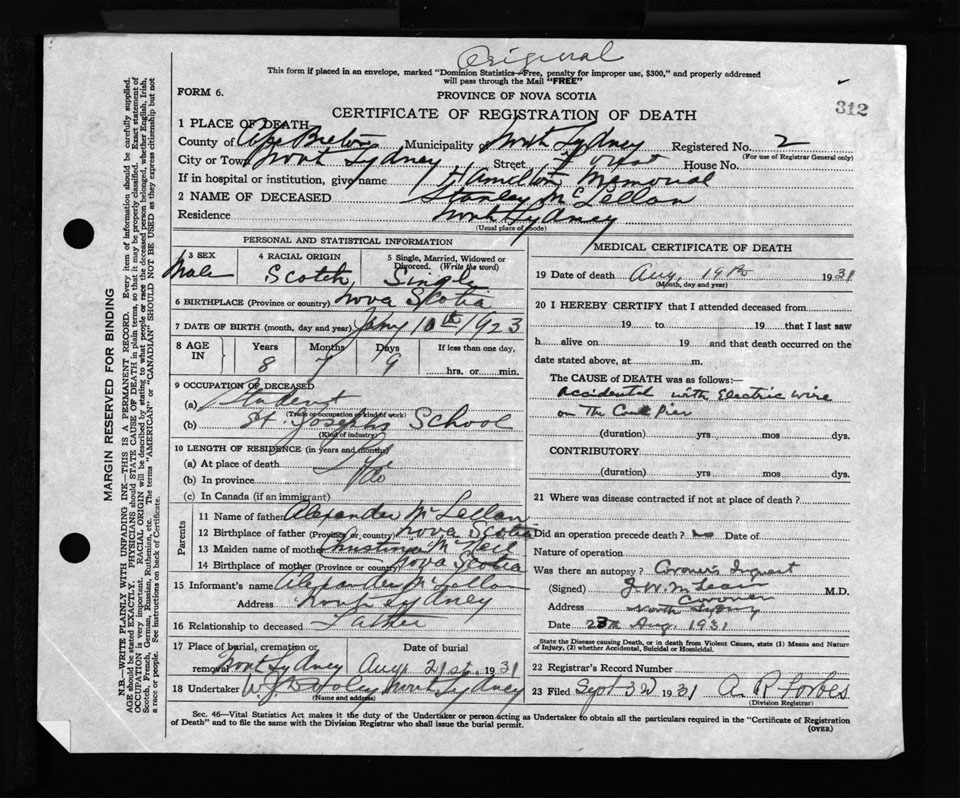 Original
This form if placed in an envelope, marked "Dominion Statistics—Free, penalty for improper use, $300," and properly addressed
will pass through the Mail "FREE"
FORM 6.
PROVINCE OF NOVA SCOTIA
312
CERTIFICATE OF REGISTRATION OF DEATH
1 PLACE OF DEATH
County of Cape Breton Municipality North Sydney Registered No. 2
(For use of Registrar General only)
City or Town North Sydney Street House No.
If in hospital or institution, give name Hamilton Memorial
2 NAME OF DECEASED Stanley McLellan
Residence North Sydney
(Usual place of abode)
PERSONAL AND STATISTICAL INFORMATION
3 SEX 4 RACIAL ORIGIN 5 Single, Married, Widowed or Divorced. (Write the word)
Male Scotch Single
6 BIRTHPLACE (Province or country) Nova Scotia
7 DATE OF BIRTH (month, day and year) Jany 10th 1923
8 AGE IN Years Months Days If less than one day,
8 7 9 hrs. or min.
9 OCCUPATION OF DECEASED
(a) Student
(Trade or occupation or kind of work)
(b) St. Josephs School
(Kind of industry)
10 LENGTH OF RESIDENCE (in years and months)
(a) At place of death Life
(b) In province do
(c) In Canada (if an immigrant)
Parents
11 Name of father Alexander McLellan
12 Birthplace of father (Province or country) Nova Scotia
13 Maiden name of mother McNeil
14 Birthplace of mother (Province or country) Nova Scotia
15 Informant's name Alexander McLellan
Address North Sydney
16 Relationship to deceased Father
17 Place of burial, cremation or removal Date of burial
North Sydney Aug 21st. 1931
18 Undertaker North Sydney
(Name and address)
MEDICAL CERTIFICATE OF DEATH
19 Date of death Aug. 19th 1931
(Month, day and year)
20 I HEREBY CERTIFY that I attended deceased from
19 to 19 that I last saw
h alive on 19 and that death occurred on the
date stated above, at m.
The CAUSE of DEATH was as follows:—
Accidental with Electric wire
on The Pier
(duration) yrs mos dys.
CONTRIBUTORY
(duration) yrs mos dys.
21 Where was disease contracted if not at place of death ?
Did an operation precede death ? no Date of
Nature of operation
Was there an autopsy ? Coroners Inquest
(Signed) J. W. McLean M.D.
Coroner
Address North Sydney
Date Aug. 1931
State the Disease causing Death, or in death from Violent Causes, state (1) Means and Nature
of Injury, (2) whether Accidental, Suicidal or Homicidal.
22 Registrar's Record Number
23 Filed Sept 3 1931 A. R. Forbes
(Division Registrar)
Sec. 46—Vital Statistics Act makes it the duty of the Undertaker or person acting as Undertaker to obtain all the particulars required in the "Certificate of Registration
of Death" and to file the same with the Division Registrar who shall issue the burial permit.
(OVER)
MARGIN RESERVED FOR BINDING
N.B.—WRITE PLAINLY WITH UNFADING INK—THIS IS A PERMANENT RECORD. Every item of information should be carefully supplied.
AGE should be stated EXACTLY. PHYSICIANS should STATE CAUSE OF DEATH in plain terms, so that it may be properly classified. Exact statement of
OCCUPATION is very important. RACIAL ORIGIN will be described by stating to what people or race the deceased person belonged, whether English, Irish,
Scotch, French, German, Russian, Ruthenian, etc. The terms "AMERICAN" or "CANADIAN" SHOULD NOT BE USED as they express citizenship but not
a race or people. See instructions on back of Certificate.